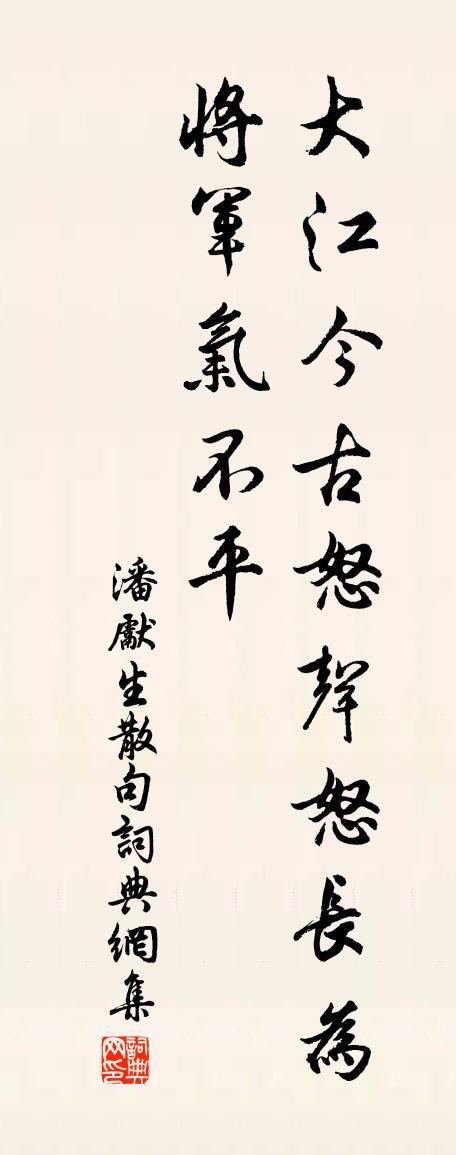 大江今古怒聲怒長為
將軍氣不平
潘獻生散句詞典網集
詞典网印